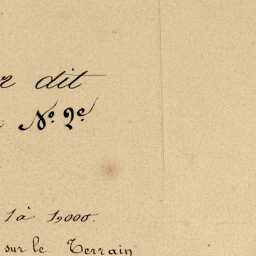 dit
N.º 2.e
1 à 1,000.
sur le Terrain